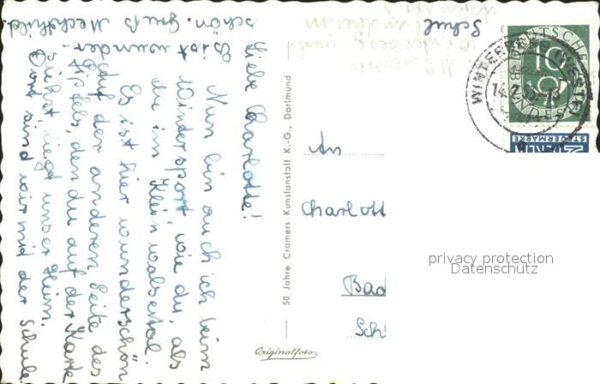 Liebe Charlotte!
Nun bin auch ich beim
Wintersport, wie du, als
du im Kleinwalsertal.
Es ist hier wunderschön
Auf der anderen Seite des
Gipfels, den du auf der Karte
siehst, liegt unser Heim.
Dort sind wir mit der Schule
Es ist wunder-
schön. Gruß Mechthild
Schule
50 Jahre Cramers Kunstanstalt K.-G., Dortmund
Originalfoto
WINTERBERG (WESTF)
14.2.
10
STEUERMARKE
An
Charlott
Bad
Sch
privacy protection
Datenschutz